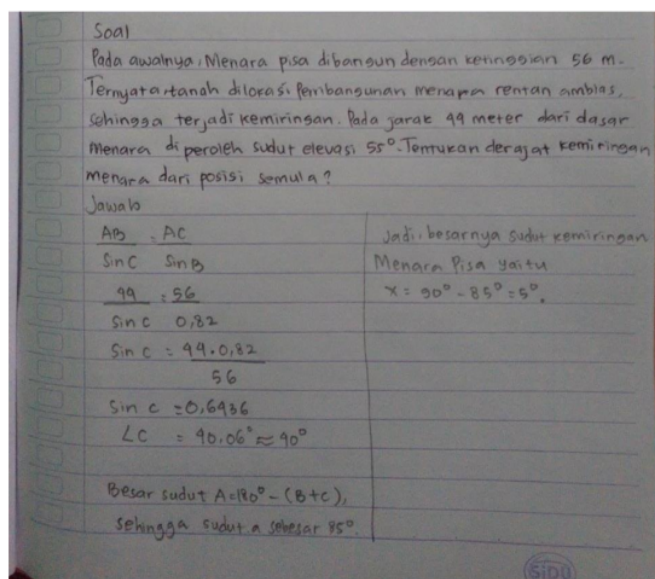 Soal
Pada awalnya, Menara pisa dibangun dengan ketinggian 56 m.
Ternyata tanah dilokasi Pembangunan menara rentan amblas,
sehingga terjadi kemiringan. Pada jarak 44 meter dari dasar
menara diperoleh sudut elevasi 55°. Tentukan derajat kemiringan
menara dari posisi semula?
Jawab
AB = AC
Sin C Sin B
44 = 56
Sin C 0,82
Sin C = 44.0,82
56
Sin C = 0,6436
∠C = 40.06° ≈ 40°
Besar sudut A = 180° - (B+C),
sehingga sudut a sebesar 85°.
Jadi, besarnya sudut kemiringan
Menara Pisa yaitu
x = 90° - 85° = 5°.
SIDU